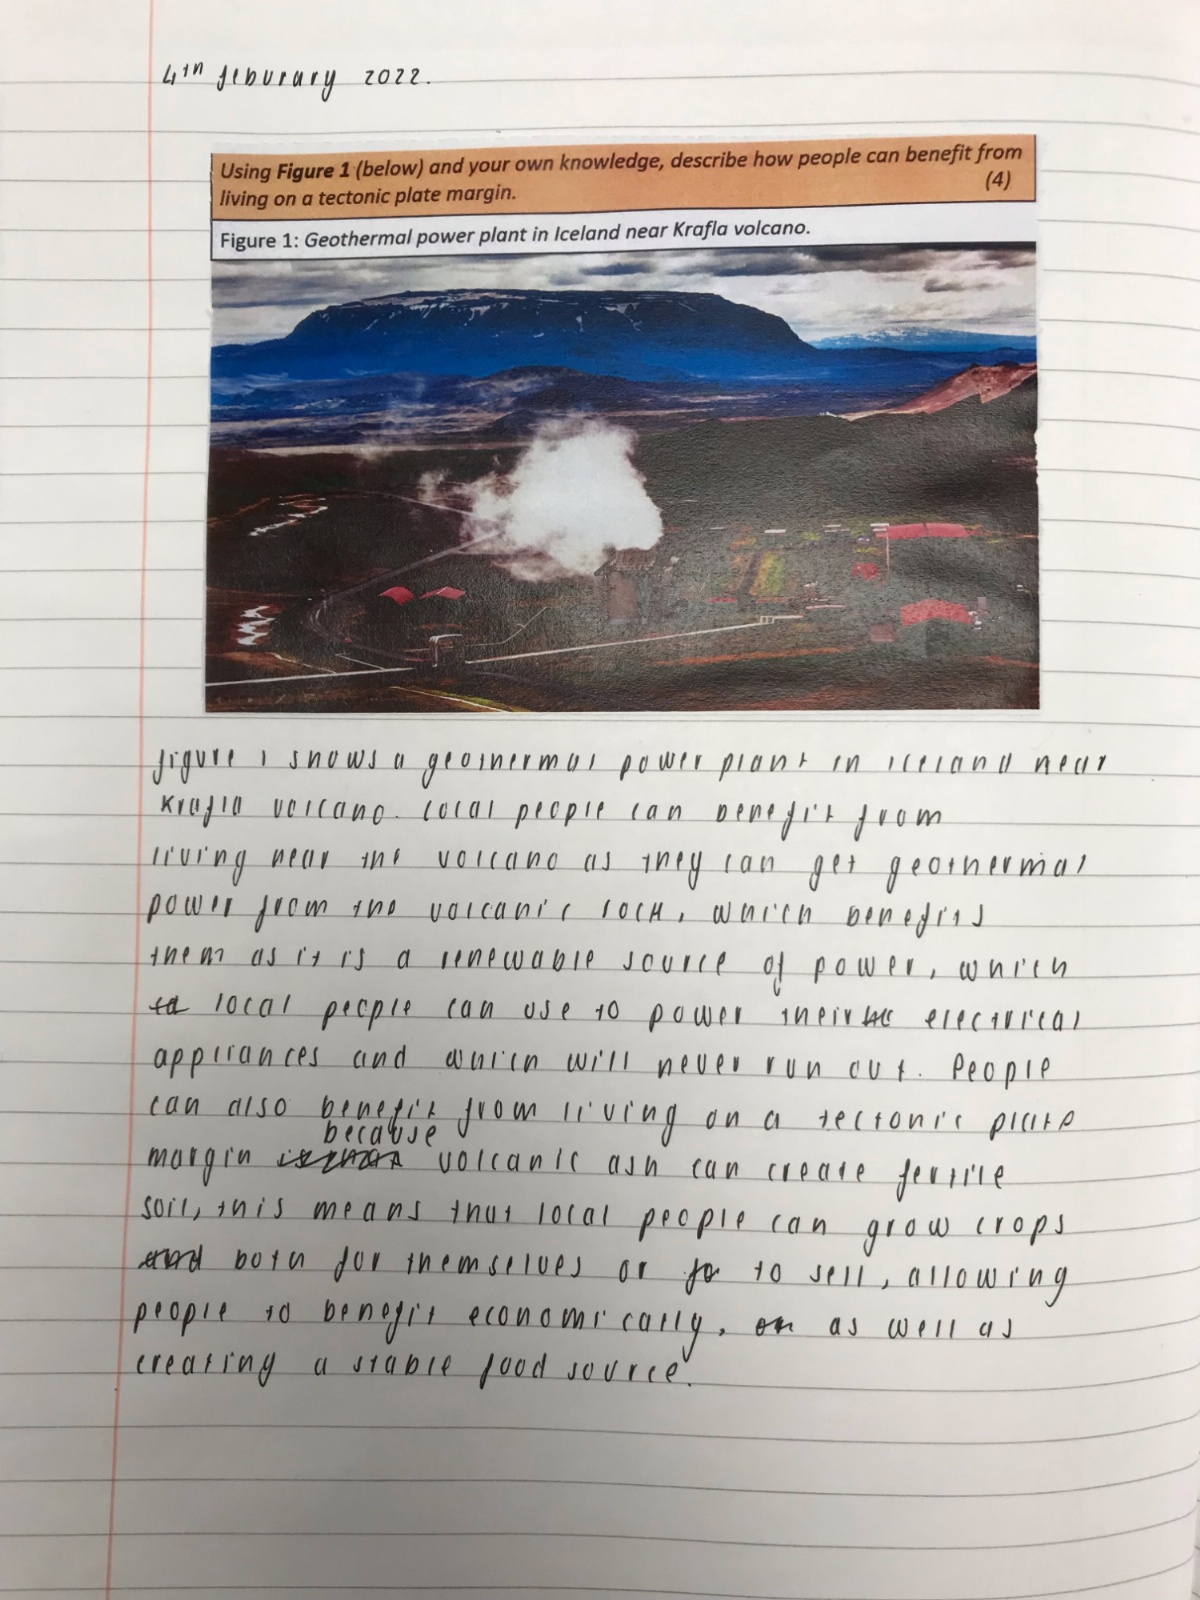 4th feburary 2022.
Using Figure 1 (below) and your own knowledge, describe how people can benefit from
living on a tectonic plate margin. (4)
Figure 1: Geothermal power plant in Iceland near Krafla volcano.
figure 1 shows a geothermal power plant in iceland near
Krafla volcano. Local people can benefit from
living near the volcano as they can get geothermal
power from the volcanic rock, which benefits
them as it is a renewable source of power, which
local people can use to power their electrical
appliances and which will never run out. People
can also benefit from living on a tectonic plate
because
margin volcanic ash can create fertile
soil, this means that local people can grow crops
and both for themselves or fo to sell, allowing
people to benefit economically, on as well as
creating a stable food source.